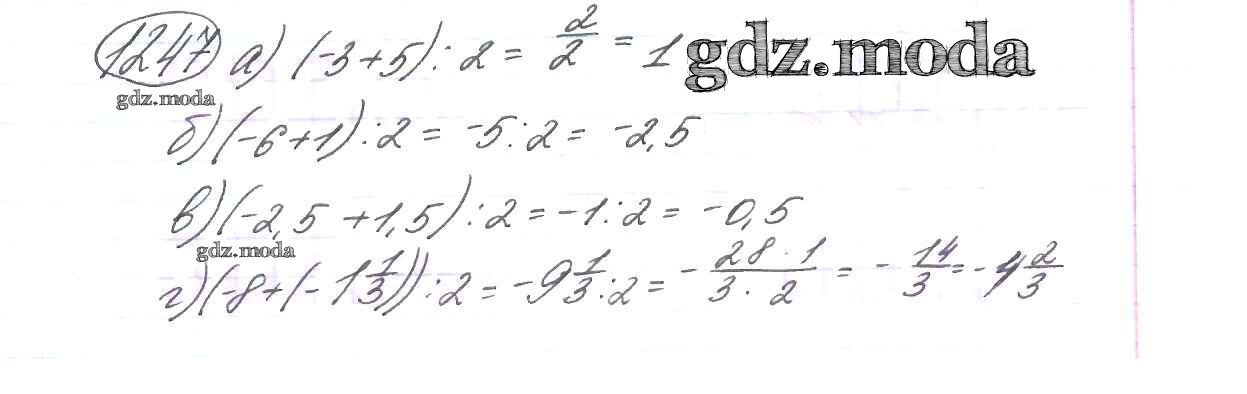 1247 а) (-3+5) : 2 = 2/2 = 1 gdz.moda
gdz.moda
б) (-6+1) : 2 = -5 : 2 = -2,5
в) (-2,5 +1,5) : 2 = -1 : 2 = -0,5
gdz.moda
г) (-8+(-1 1/3)) : 2 = -9 1/3 : 2 = - 28·1/3·2 = - 14/3 = -4 2/3